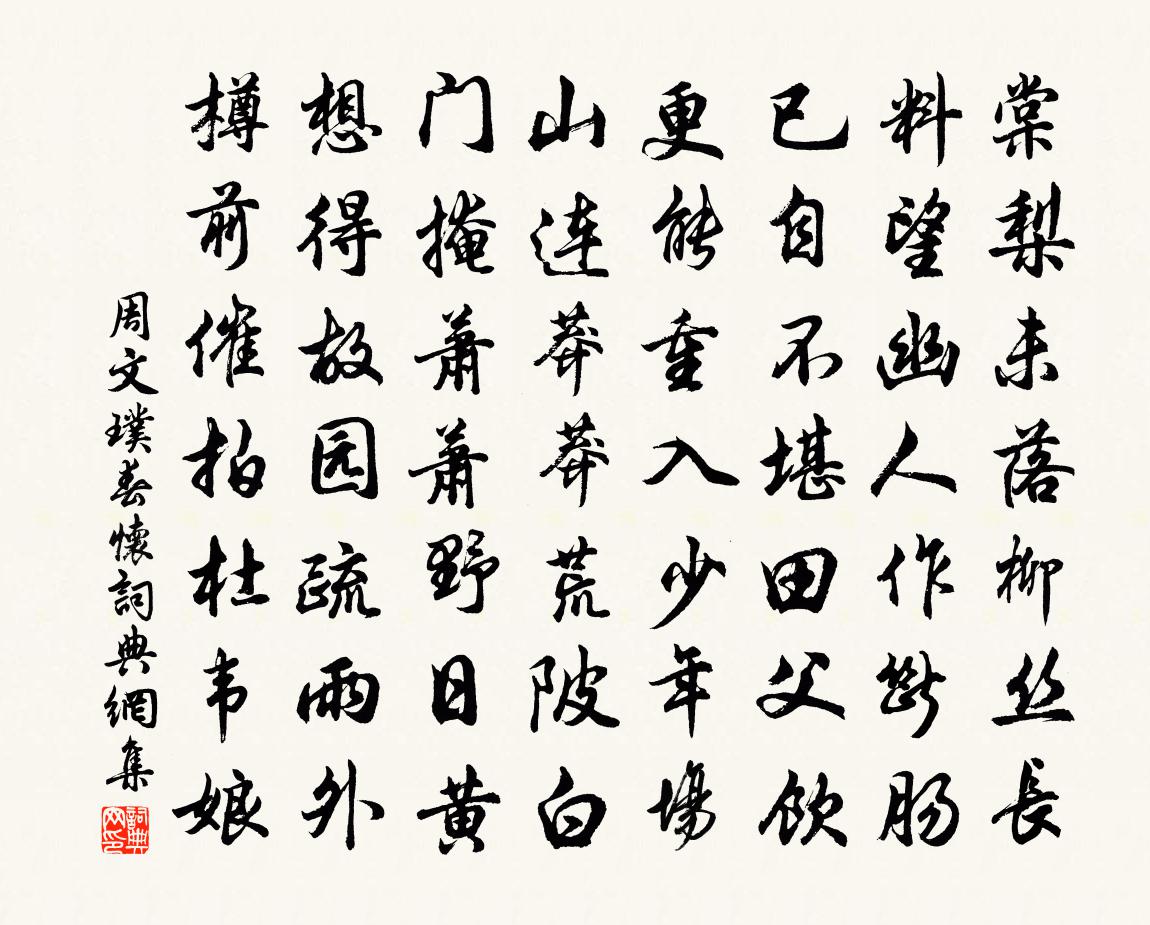 棠梨未落柳丝長
料望幽人作断肠
已自不堪田父饮
更能重入少年場
山连莽莽荒陂白
门掩萧萧野日黄
想得故园疏雨外
樽前催拍杜韦娘
周文璞春懷詞典網集
詞典网印